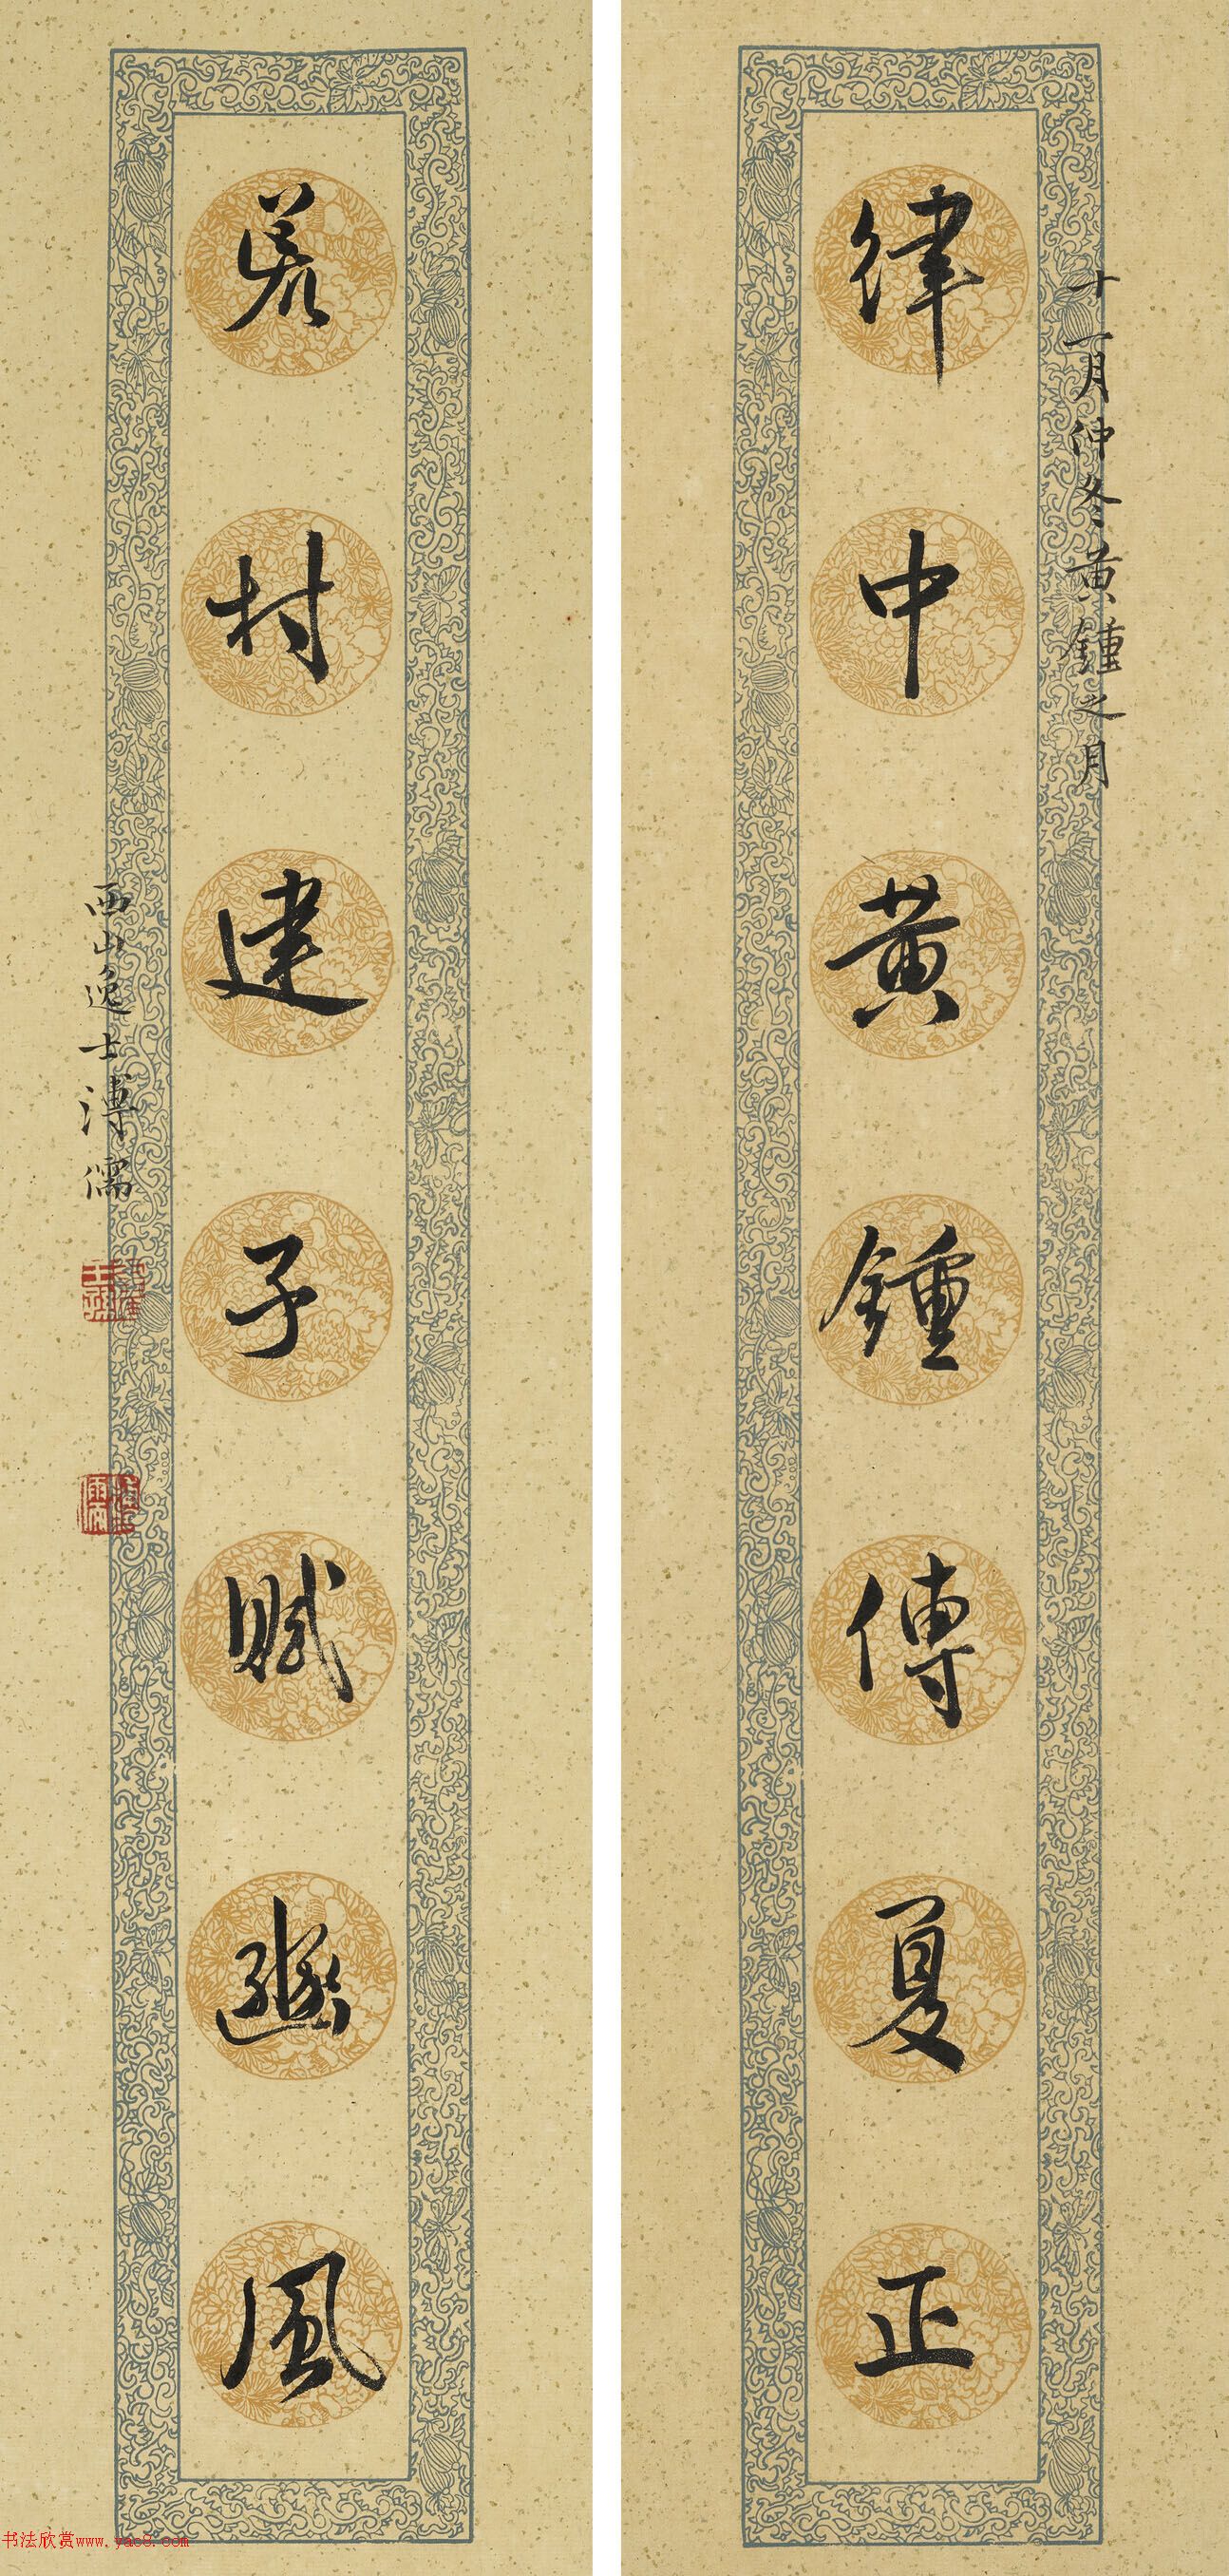 十一月仲冬黃鍾之月
律中黃鍾傳夏正
荒村建子賦豳風
西山逸士溥儒
溥儒
书法欣赏www.yac8.com